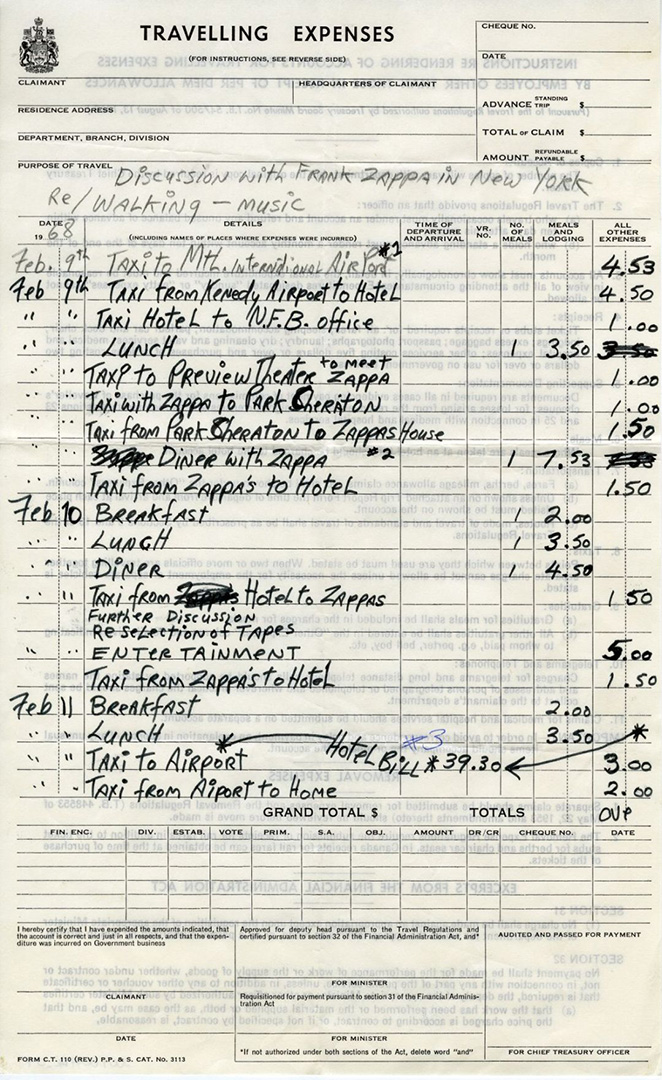 TRAVELLING EXPENSES
(FOR INSTRUCTIONS, SEE REVERSE SIDE)
CHEQUE NO.
DATE
CLAIMANT HEADQUARTERS OF CLAIMANT
ADVANCE STANDING TRIP $
RESIDENCE ADDRESS
TOTAL OF CLAIM $
DEPARTMENT, BRANCH, DIVISION
AMOUNT REFUNDABLE PAYABLE $
PURPOSE OF TRAVEL
DISCUSSION WITH FRANK ZAPPA IN NEW YORK
Re/ WALKING - MUSIC
DATE 1968 DETAILS (INCLUDING NAMES OF PLACES WHERE EXPENSES WERE INCURRED) TIME OF DEPARTURE AND ARRIVAL VR. NO. NO. OF MEALS MEALS AND LODGING ALL OTHER EXPENSES
Feb. 9th TAXI to Mtl. International Airport #1 4.53
Feb 9th TAXI from Kenedy Airport to Hotel 4.50
" " TAXI Hotel to N.F.B. office 1.00
" " LUNCH 1 3.50
" " TAXI to PREVIEW THEATER to meet ZAPPA 1.00
" " TAXI with ZAPPA to PARK SHERATON 1.00
" " TAXI from PARK SHERATON to ZAPPAS House 1.50
" " DINER with ZAPPA #2 1 7.53
" " TAXI from ZAPPA's to Hotel 1.50
Feb 10 BREAKFAST 1 2.00
" " LUNCH 1 3.50
" " DINER 1 4.50
" " TAXI from Hotel to ZAPPAS 1.50
Further Discussion
Re selection of TAPES
" " ENTERTAINMENT 5.00
" " TAXI from ZAPPA'S to Hotel 1.50
Feb 11 BREAKFAST 2.00
" " LUNCH 3.50 *
" " TAXI to AIRPORT * Hotel BILL #3 * 39.30 3.00
" " TAXI from AIPORT to HOME 2.00
GRAND TOTAL $ TOTALS OVP
FIN. ENC. DIV. ESTAB. VOTE PRIM. S.A. OBJ. AMOUNT DR/CR CHEQUE NO. DATE
I hereby certify that I have expended the amounts indicated, that the account is correct and just in all respects, and that the expenditure was incurred on Government business
Approved for deputy head pursuant to the Travel Regulations and certified pursuant to section 32 of the Financial Administration Act, and*
AUDITED AND PASSED FOR PAYMENT
FOR MINISTER
CLAIMANT
Requisitioned for payment pursuant to section 31 of the Financial Administration Act
DATE
FOR MINISTER
*If not authorized under both sections of the Act, delete word "and"
FOR CHIEF TREASURY OFFICER
FORM C.T. 110 (REV.) P.P. & S. CAT. No. 3113